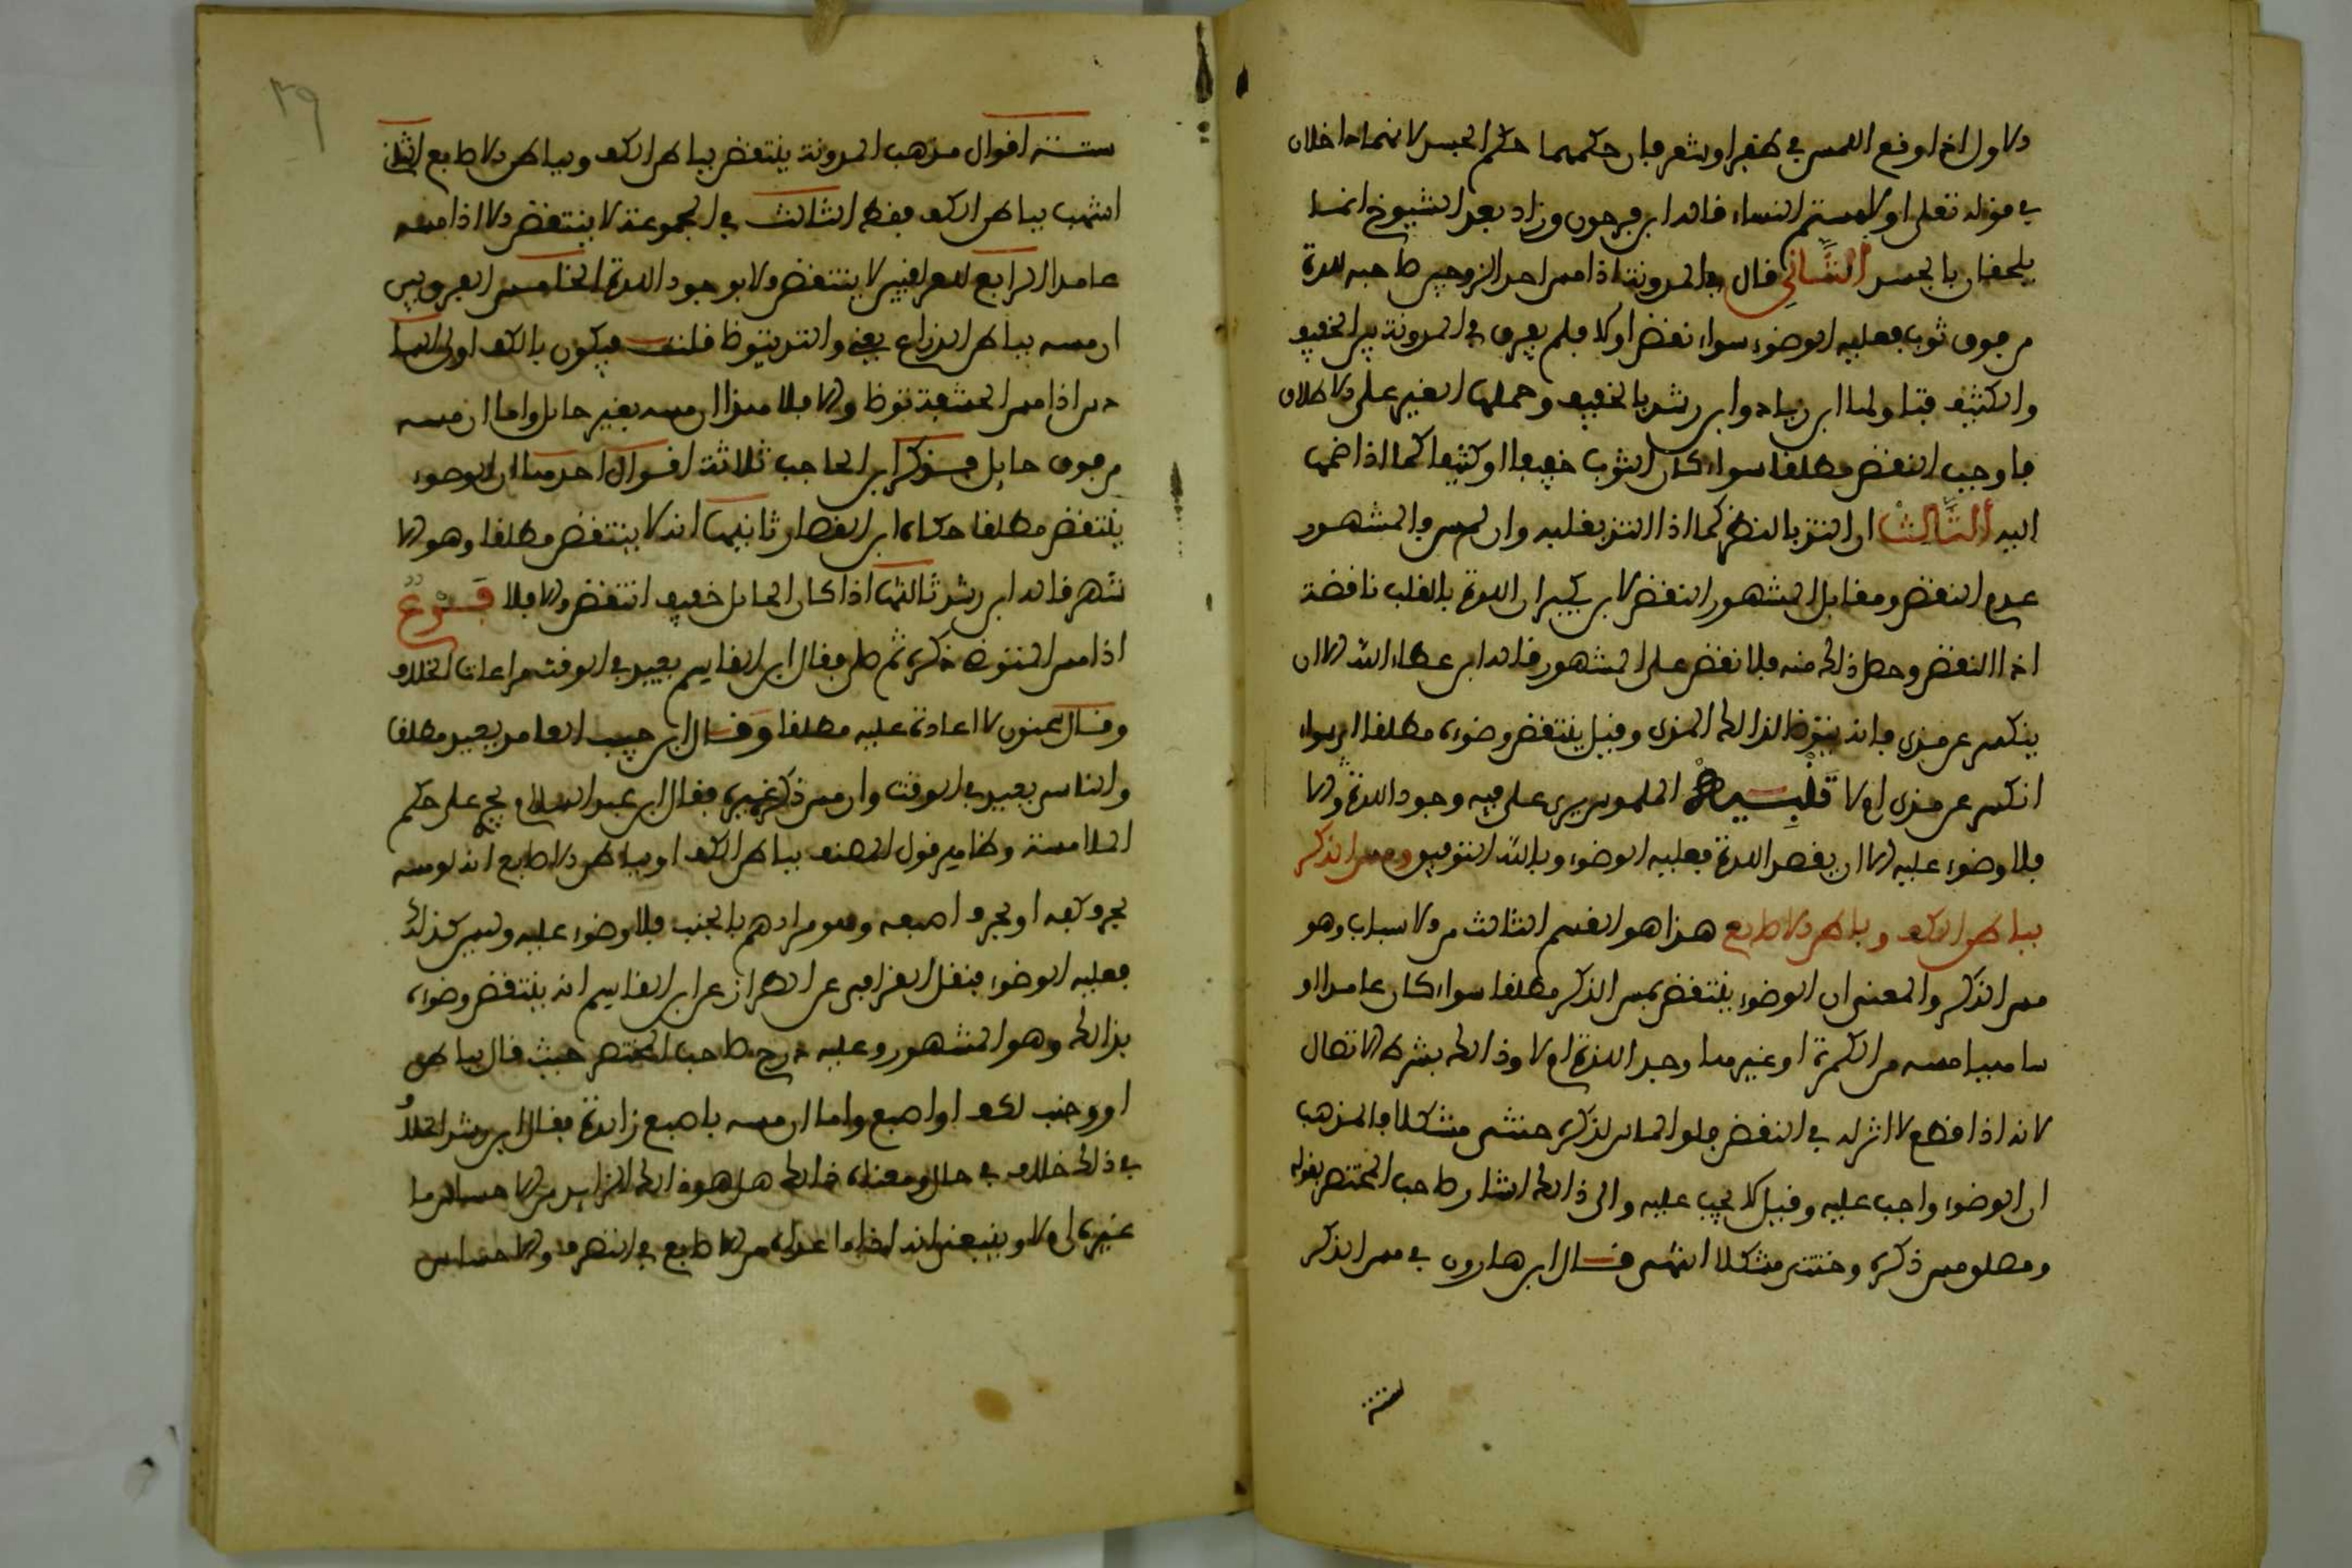 الاول اذا وقع اللمس في ظفر او شعر فان حكمهما حكم الجسد لانهما داخلان
في قوله تعلى او لامستم النساء قاله ابن فرحون وزاد بعد الشيوخ انما
يلحقان بالجسد الثاني قال في المدونة اذا مس احد الزوجين صاحبه للذة
من فوق ثوب فعليه الوضوء سواء نعض اولا فلم يفرق في المدونة بين الخفيف
والكثيف فتاولها ابن زياد وابن رشد بالخفيف وحملها الغير على الاطلاق
فاوجب النقض مطلقا سواء كان الثوب خفيفا او كثيفا كما اذا ضمها
اليه الثالث ان التذ بالنظر كما اذا التذ بقلبه وان لم يمس فالمشهور
عدم النقض ومقابل المشهور النقض لابن بكير ان اللذة بالقلب ناقضة
اذا النعض وحصل ذالك منه فلا نقض على المشهور قاله ابن عطاء الله الا ان
ينكسر عن مذي فانه يتوضا لذالك المذي وقيل ينتقض وضوءه مطلقا اي سواء
انكسر عن مذي ام لا تنبيه الملموس يجري على فيه وجود اللذة والا
فلا وضوء عليه الا ان يقصد اللذة فعليه الوضوء وبالله التوفيق ومس الذكر
بباطن الكف وباطن الاصابع هذا هو القسم الثالث من الاسباب وهو
مس الذكر والمعنى ان الوضوء ينتقض بمس الذكر مطلقا سواء كان عامدا او
ساهيا مسه من الكمرة او غيرها وجد اللذة ام لا وذالك بشرط الاتصال
لانه اذا قطع لا اثر له في النقض فلو الماس لذكره خنثى مشكلا فالمذهب
ان الوضوء واجب عليه وقيل لا يجب عليه والى ذالك اشار صاحب المختصر بقوله
ومطلق مس ذكره وخنثى مشكلا انتهى قال ابن هارون في مس الذكر
ستة
ستة اقوال مذهب المدونة ينتقض بباطن الكف وبباطن الاصابع الثاني
اشهب بباطن الكف فقط الثالث في المجموعة لا ينتقض الا اذا مسه
عامدا الرابع للعراقيين لا ينتقض الا بوجود اللذة الخامس
ان مسه بباطن الذراع والتذ يتوضا قلت فيكون بالكف اولى السا
دس اذا مس الحشفة توضا والا فلا هذا ان مسه بغير حايل واما ان مسه
من فوق حايل فذكر ابن الحاجب ثلاثة اقوال احدها ان الوضوء
ينتقض مطلقا حكاه ابن القصار ثانيها انه لا ينتقض مطلقا وهو الا
شهر قاله ابن رشد ثالثها اذا كان الحايل خفيفا انتقض والا فلا فرع
اذا مس المتوضئ ذكره ثم صلى فقال ابن القاسم يعيد في الوقت مراعات الخلاف
وقال سحنون لا اعادة عليه مطلقا وقال ابن حبيب العامد يعيد مطلقا
والناس يعيد في الوقت وان مس ذكر غيره فقال ابن عبد السلام يجري على حكم
الملامسة وظاهر قول المصنف بباطن الكف او بباطن الاصابع انه لو مسه
بحرف كفه او بحرف اصبعه وهو مرادهم بالجنب فلا وضوء عليه وليس كذلك
فعليه الوضوء فنقل القرافي عن الطراز عن ابن القاسم انه ينتقض وضوءه
بذالك وهو المشهور وعليه درج صاحب المختصر حيث قال بباطن
او جنب لكف او اصبع واما ان مسه باصبع زايدة فقال ابن رشد الخلاف
في ذلك خلاف في حال ومعناه ذالك هل هو ذالك الزايد من الاحساس ما
غيره ام لا وينبغي انه اذا ما من الاصابع في التصرف والاحساس